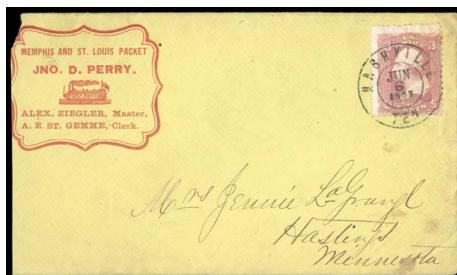 MEMPHIS AND ST. LOUIS PACKET
JNO. D. PERRY.
ALEX. ZIEGLER, Master,
A. E. ST. GEMME, Clerk.
NASHVILLE
JUN
6
TEN
3
Mrs Jennie LaGrange
Hastings
Minnesota